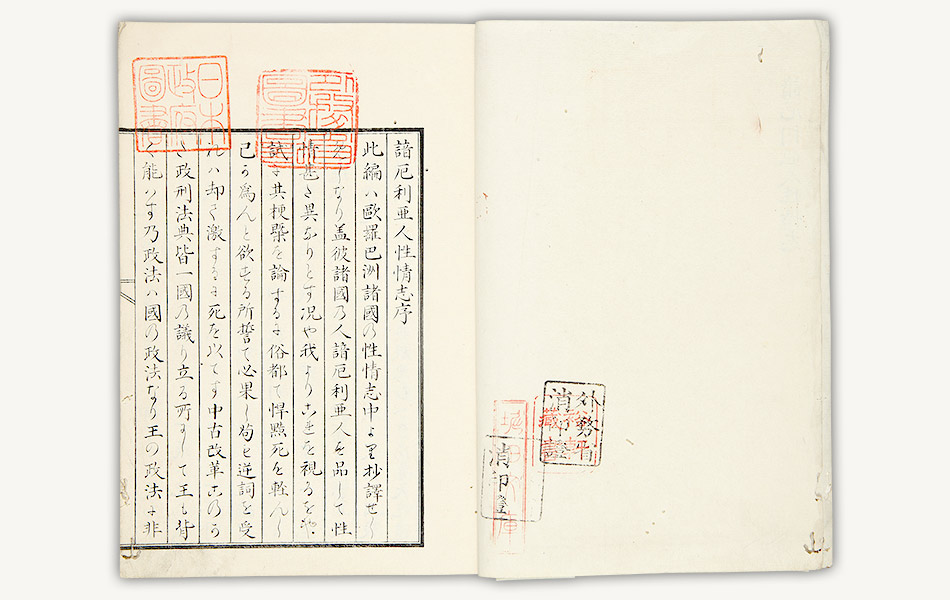 諳厄利亜人性情志序
此編ハ歐羅巴洲諸國の性情志中より抄譯せし
をしなり盖彼諸國乃人諳厄利亜人を品して性
情甚た異なりとす况や我より是を視るをや
試に其梗槩を論するに俗都て悍黠死を軽んし
己か為んと欲する所誓て必果し苟も逆詞を受
れハ却て激するに死を以てす中古改革の
政刑法典皆一國乃議り立る所にして王も背
く能ハす乃政法ハ國の政法なり王の政法に非
日本政府圖書
外務省圖書
外務省
消印證
消印